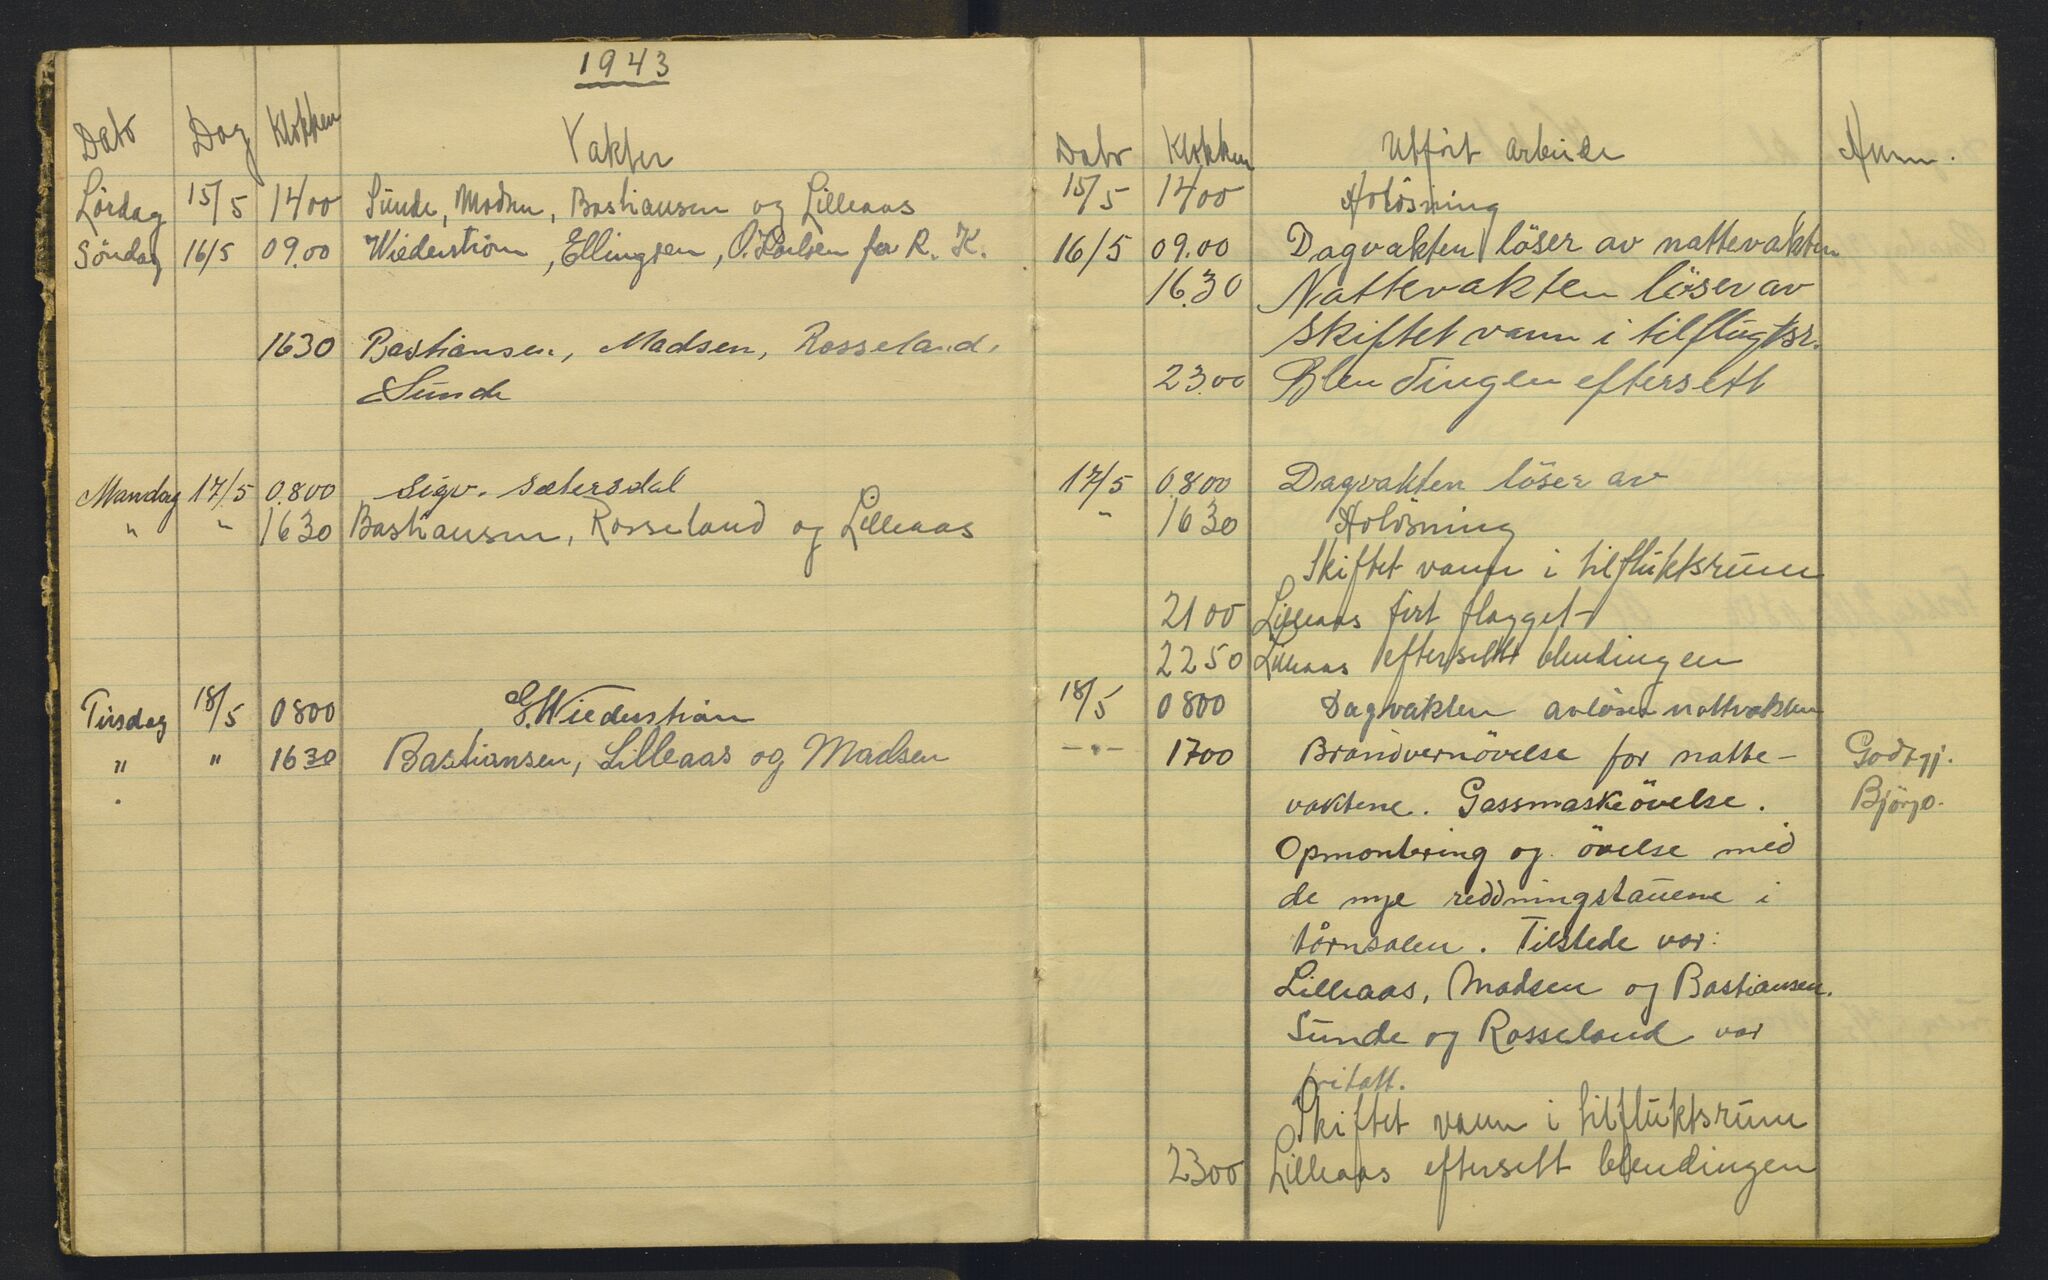 1943
Dato Dag Klokken Vakter
Lördag 15/5 1400 Sunde, Madsen, Bastiansen og Lilleaas
Söndag 16/5 09.00 Wiederström, Ellingsen, O. Karlsen for R. K.
1630 Bastiansen, Madsen, Rosseland,
Sunde
Mandag 17/5 0800 Sigv. Sætersdal
" " 1630 Bastiansen, Rosseland og Lilleaas
Tirsdag 18/5 0800 G. Wiederström
" " 1630 Bastiansen, Lilleaas og Madsen
Dato Klokken Utfört arbeide Anm.
15/5 1400 Avlösning
16/5 09.00 Dagvakten löser av nattevakten
16.30 Nattevakten löser av
skiftet vann i tilflugtsr.
2300 Blendingen eftersett
17/5 0800 Dagvakten löser av
" 1630 Avlösning
Skiftet vann i tilfluktsrum
2100 Lilleaas firt flagget
2250 Lilleaas eftersett blendingen
18/5 0800 Dagvakten avlöser nattvakten
-"- 1700 Brandvernövelse for natte- Godtgj.
vaktene. Gassmaskeövelse. Björgo.
Opmontering og övelse med
de nye reddningstauene i
tårnsalen. Tilstede var:
Lilleaas, Madsen og Bastiansen.
Sunde og Rosseland var
fritatt.
Skiftet vann i tilfluktsrum
2300 Lilleaas eftersett blendingen